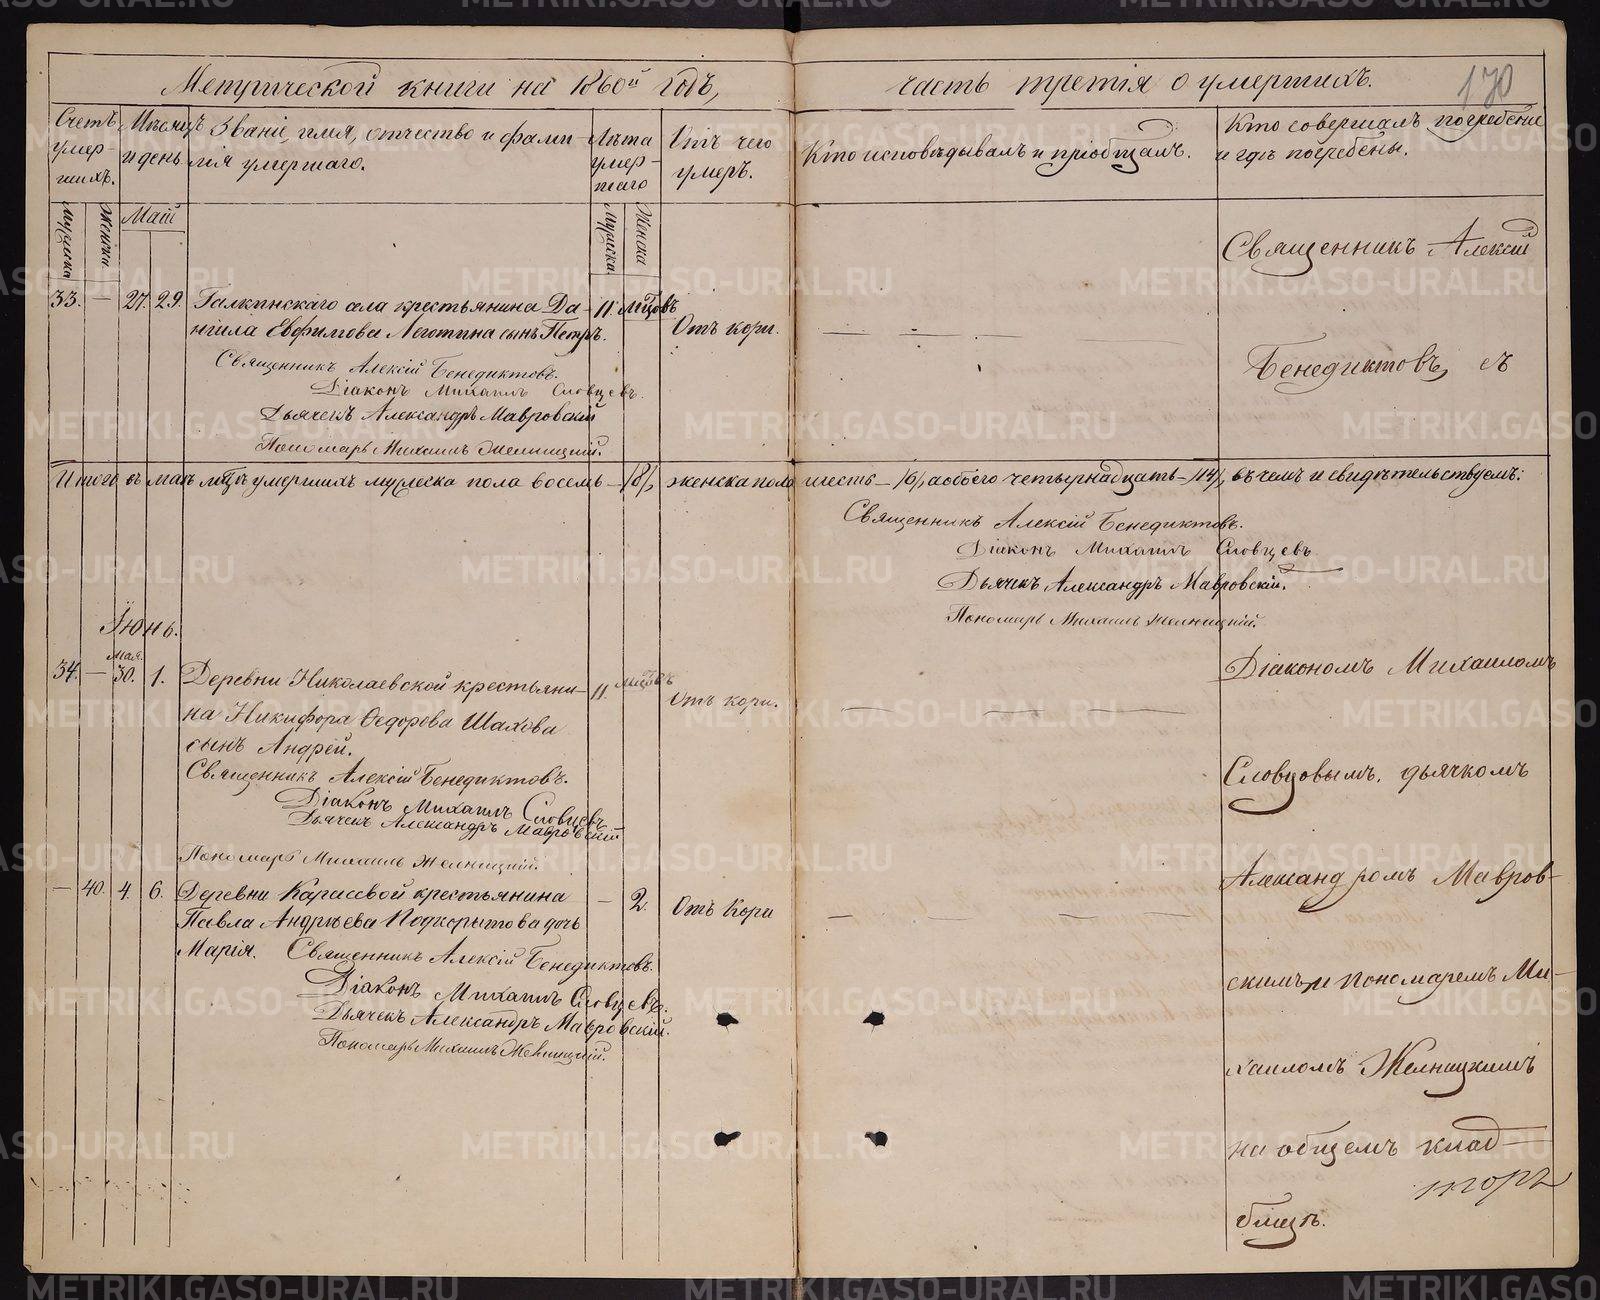 Метрической книги на 1860й годъ,
часть третія о умершихъ.
170
Счетъ умер-шихъ.
Мѣсяцъ и день
Званіе, имя, отчество и фами-
лія умершаго.
Лѣта умер-шаго
Отъ чего умеръ.
Кто исповѣдывалъ и пріобщалъ.
Кто совершалъ погребеніе
и гдѣ погребены.
Мужеска
Женска
Май
Мужеска
Женска
33. — 27. 29. Галкинскаго села крестьянина Да- 11. мѣсцовъ
ніила Евфимова Леготина сынъ Петръ. Отъ кори. — —
Священникъ Алексій Бенедиктовъ.
Діаконъ Михаилъ Словцевъ.
Дьячекъ Александръ Мавровскій
Пономарь Михаилъ Желницкій.
Итого въ маѣ мѣсцѣ умершихъ мужеска пола восемь — /8/, женска пола шесть — /6/, а обоего четырнадцать — /14/, въ чемъ и свидѣтельствуемъ:
Священникъ Алексій Бенедиктовъ.
Діаконъ Михаилъ Словцевъ
Дьячекъ Александръ Мавровскій.
Пономарь Михаилъ Желницкій.
Іюнь.
мая.
34. — 30. 1. Деревни Николаевской крестьяни- 11. мѣсцовъ Отъ кори. — — —
на Никифора Ѳедорова Шахова
сынъ Андрей.
Священникъ Алексій Бенедиктовъ.
Діаконъ Михаилъ Словцевъ
Дьячекъ Александръ Мавровскій
Пономарь Михаилъ Желницкій.
— 40. 4. 6. Деревни Карасевой крестьянина — 2. Отъ кори — — — —
Павла Андрѣева Подкорытова дочь
Марія. Священникъ Алексій Бенедиктовъ.
Діаконъ Михаилъ Словцевъ.
Дьячекъ Александръ Мавровскій.
Пономарь Михаилъ Желницкій.
Священникъ Алексій
Бенедиктовъ, съ
Діакономъ Михаиломъ
Словцовымъ, дьячкомъ
Александромъ Мавров-
скимъ и пономаремъ Ми-
хаиломъ Желницкимъ
на общемъ клад-
бищѣ.
METRIKI.GASO-URAL.RU